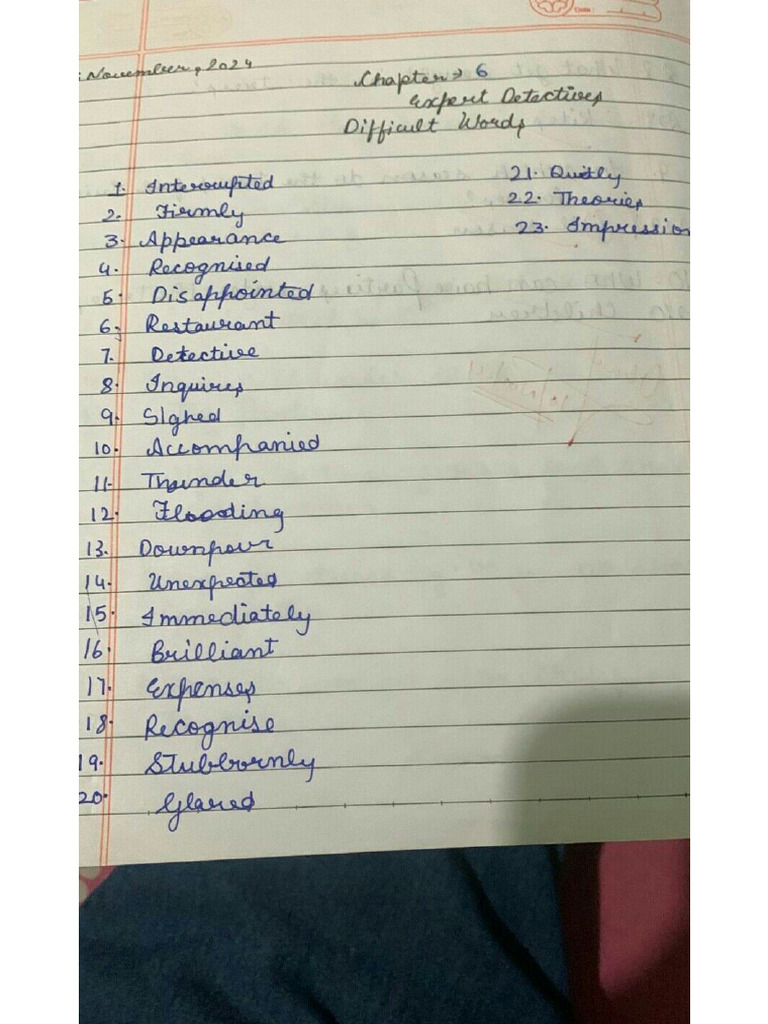 November, 2024
Chapter → 6
Expert Detectives
Difficult Words
1. Interrupted
2. Firmly
3. Appearance
4. Recognised
5. Disappointed
6. Restaurant
7. Detective
8. Inquires
9. Sighed
10. Accompanied
11. Thunder
12. Flooding
13. Downpour
14. Unexpected
15. Immediately
16. Brilliant
17. Expenses
18. Recognise
19. Stubbornly
20. Glared
21. Quitly
22. Theories
23. Impression